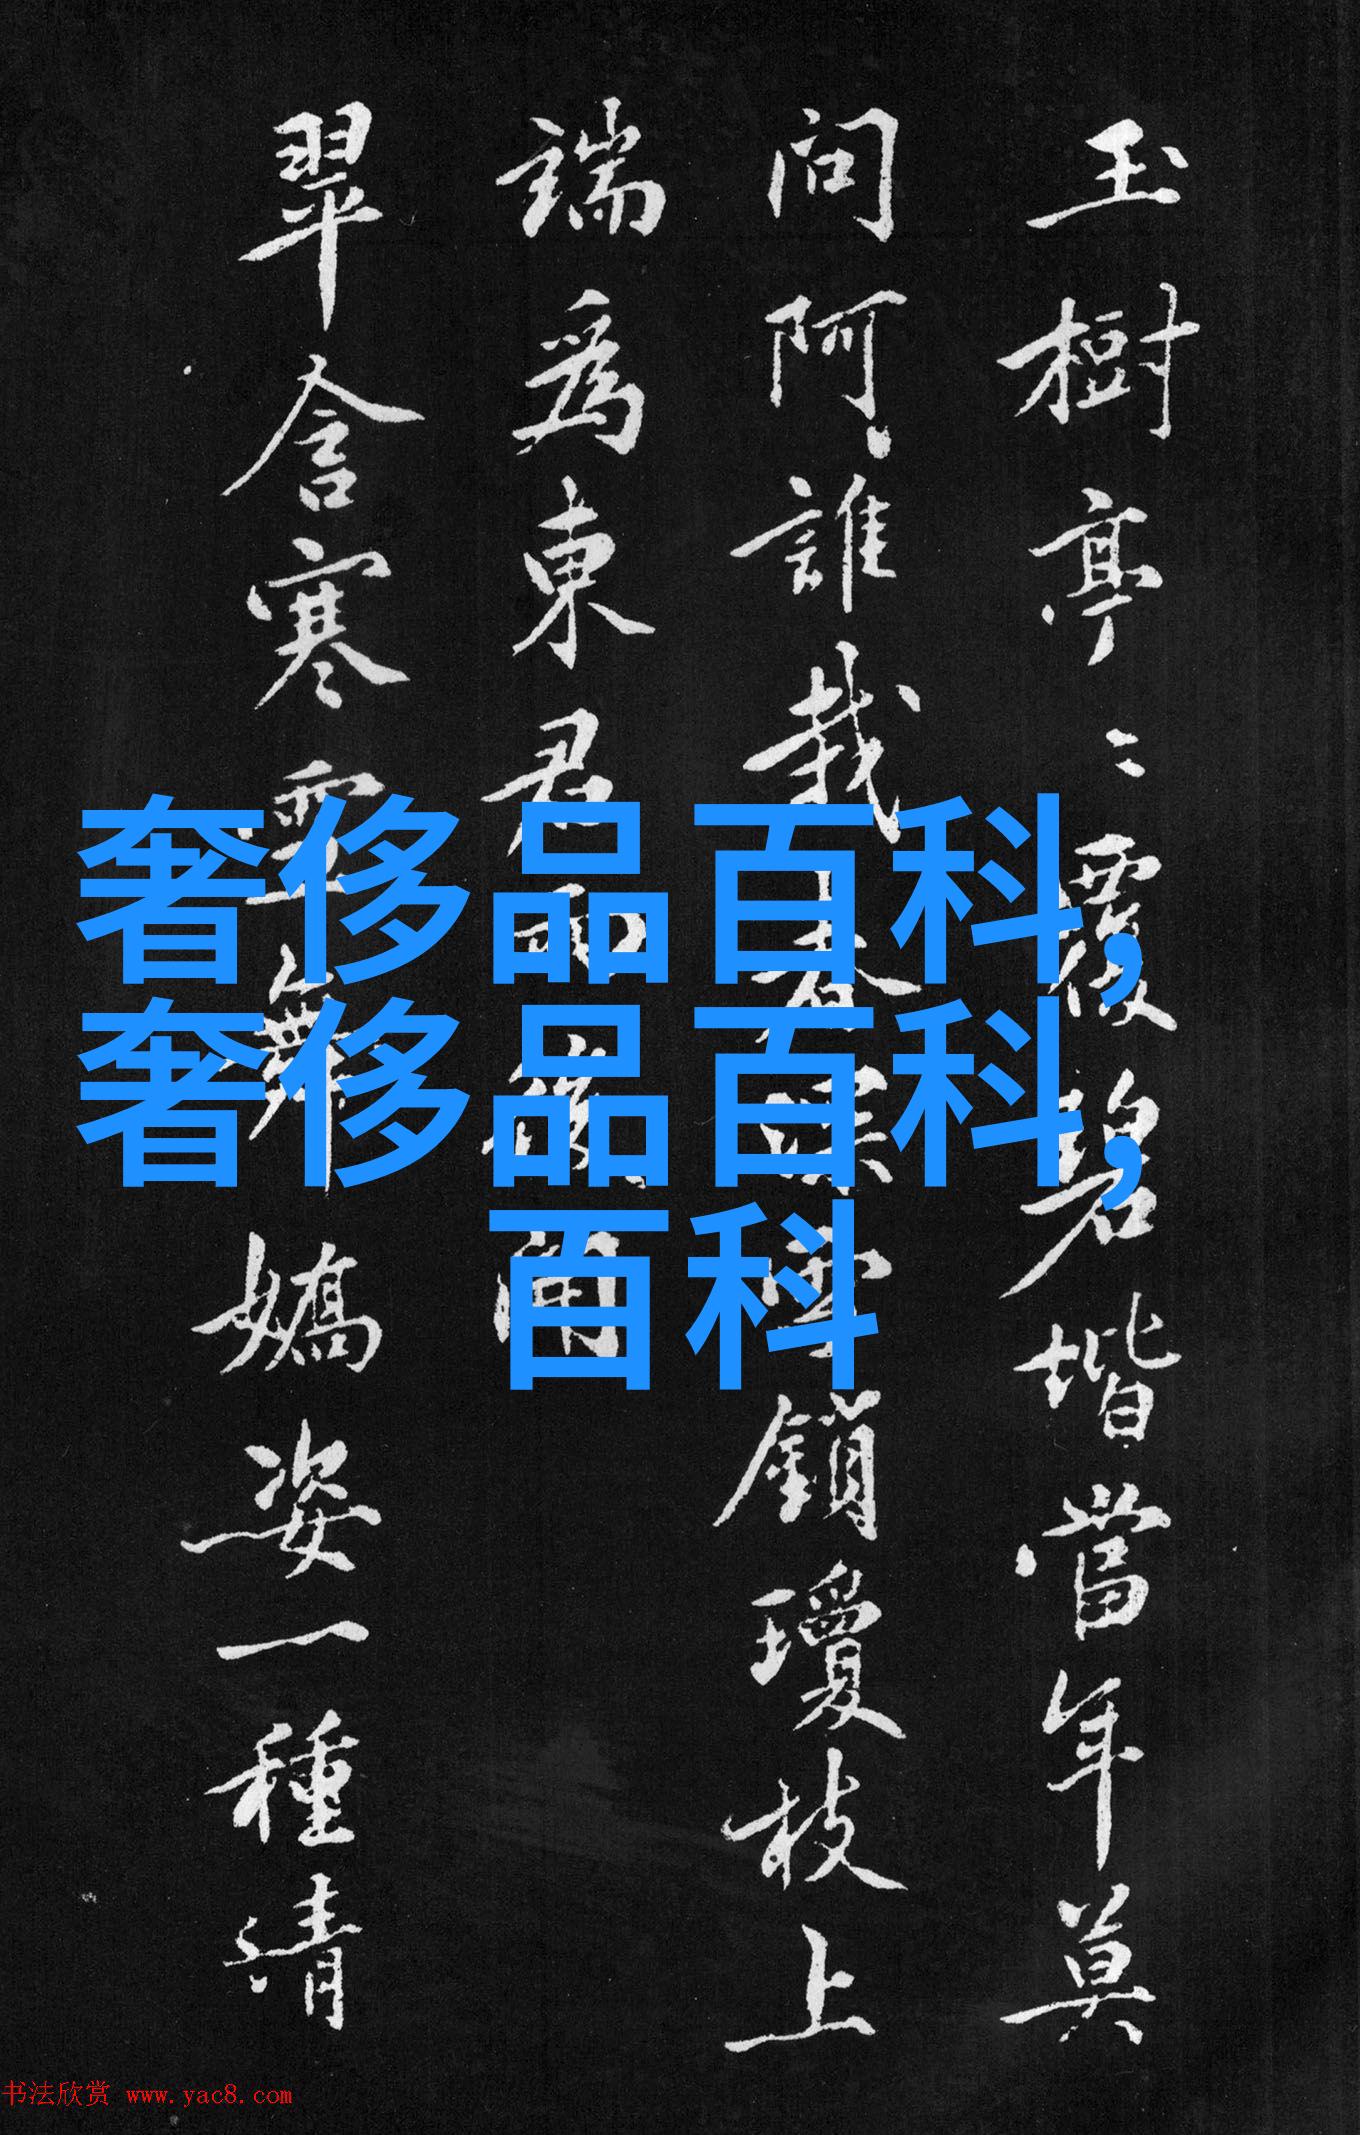 玉樹亭〻覆碧堦當年莫
問阿誰栽春深雪鎖瓊枝上
端爲東君後開
翠含寒舞嬌姿一種清
奢侈品百科,
奢侈品百科,
百科
书法欣赏 www.yac8.com